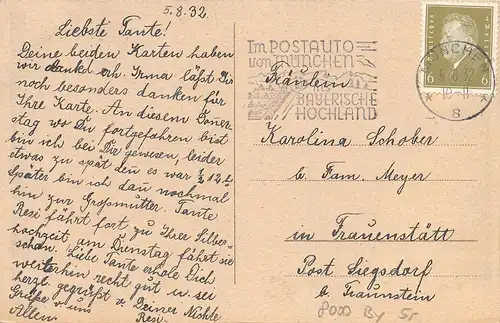 5.8.32
Liebste Tante!
Deine beiden Karten haben
wir dankd erh. Irma läßt Dir
noch besonders danken für
Ihre Karte. An diesem Doners-
tag wo Du fortgefahren bist
bin ich bei Dir gewesen, leider
etwas zu spät den es war ½ 12 h
Später bin ich dan nochmal
hin zur Großmutter. Tante
Resi fährt fort zu Ihrer Silber-
hochzeit am Dienstag fährt sie
schon. Liebe Tante erhole Dich
weiterhin recht gut u. sei
herzl. gegrüßt v. Deiner Nichte
Grüße v. uns Resi.
Allen.
Im POSTAUTO
von MÜNCHEN
BAYERISCHE
HOCHLAND
DEUTSCHES REICH
6 6
MÜNCHEN
5.8.32
10-11
8
Fräulein
Karolina Schober
b. Fam. Meyer
in Frauenstätt
Post Siegsdorf
b. Traunstein
8000 By 5r